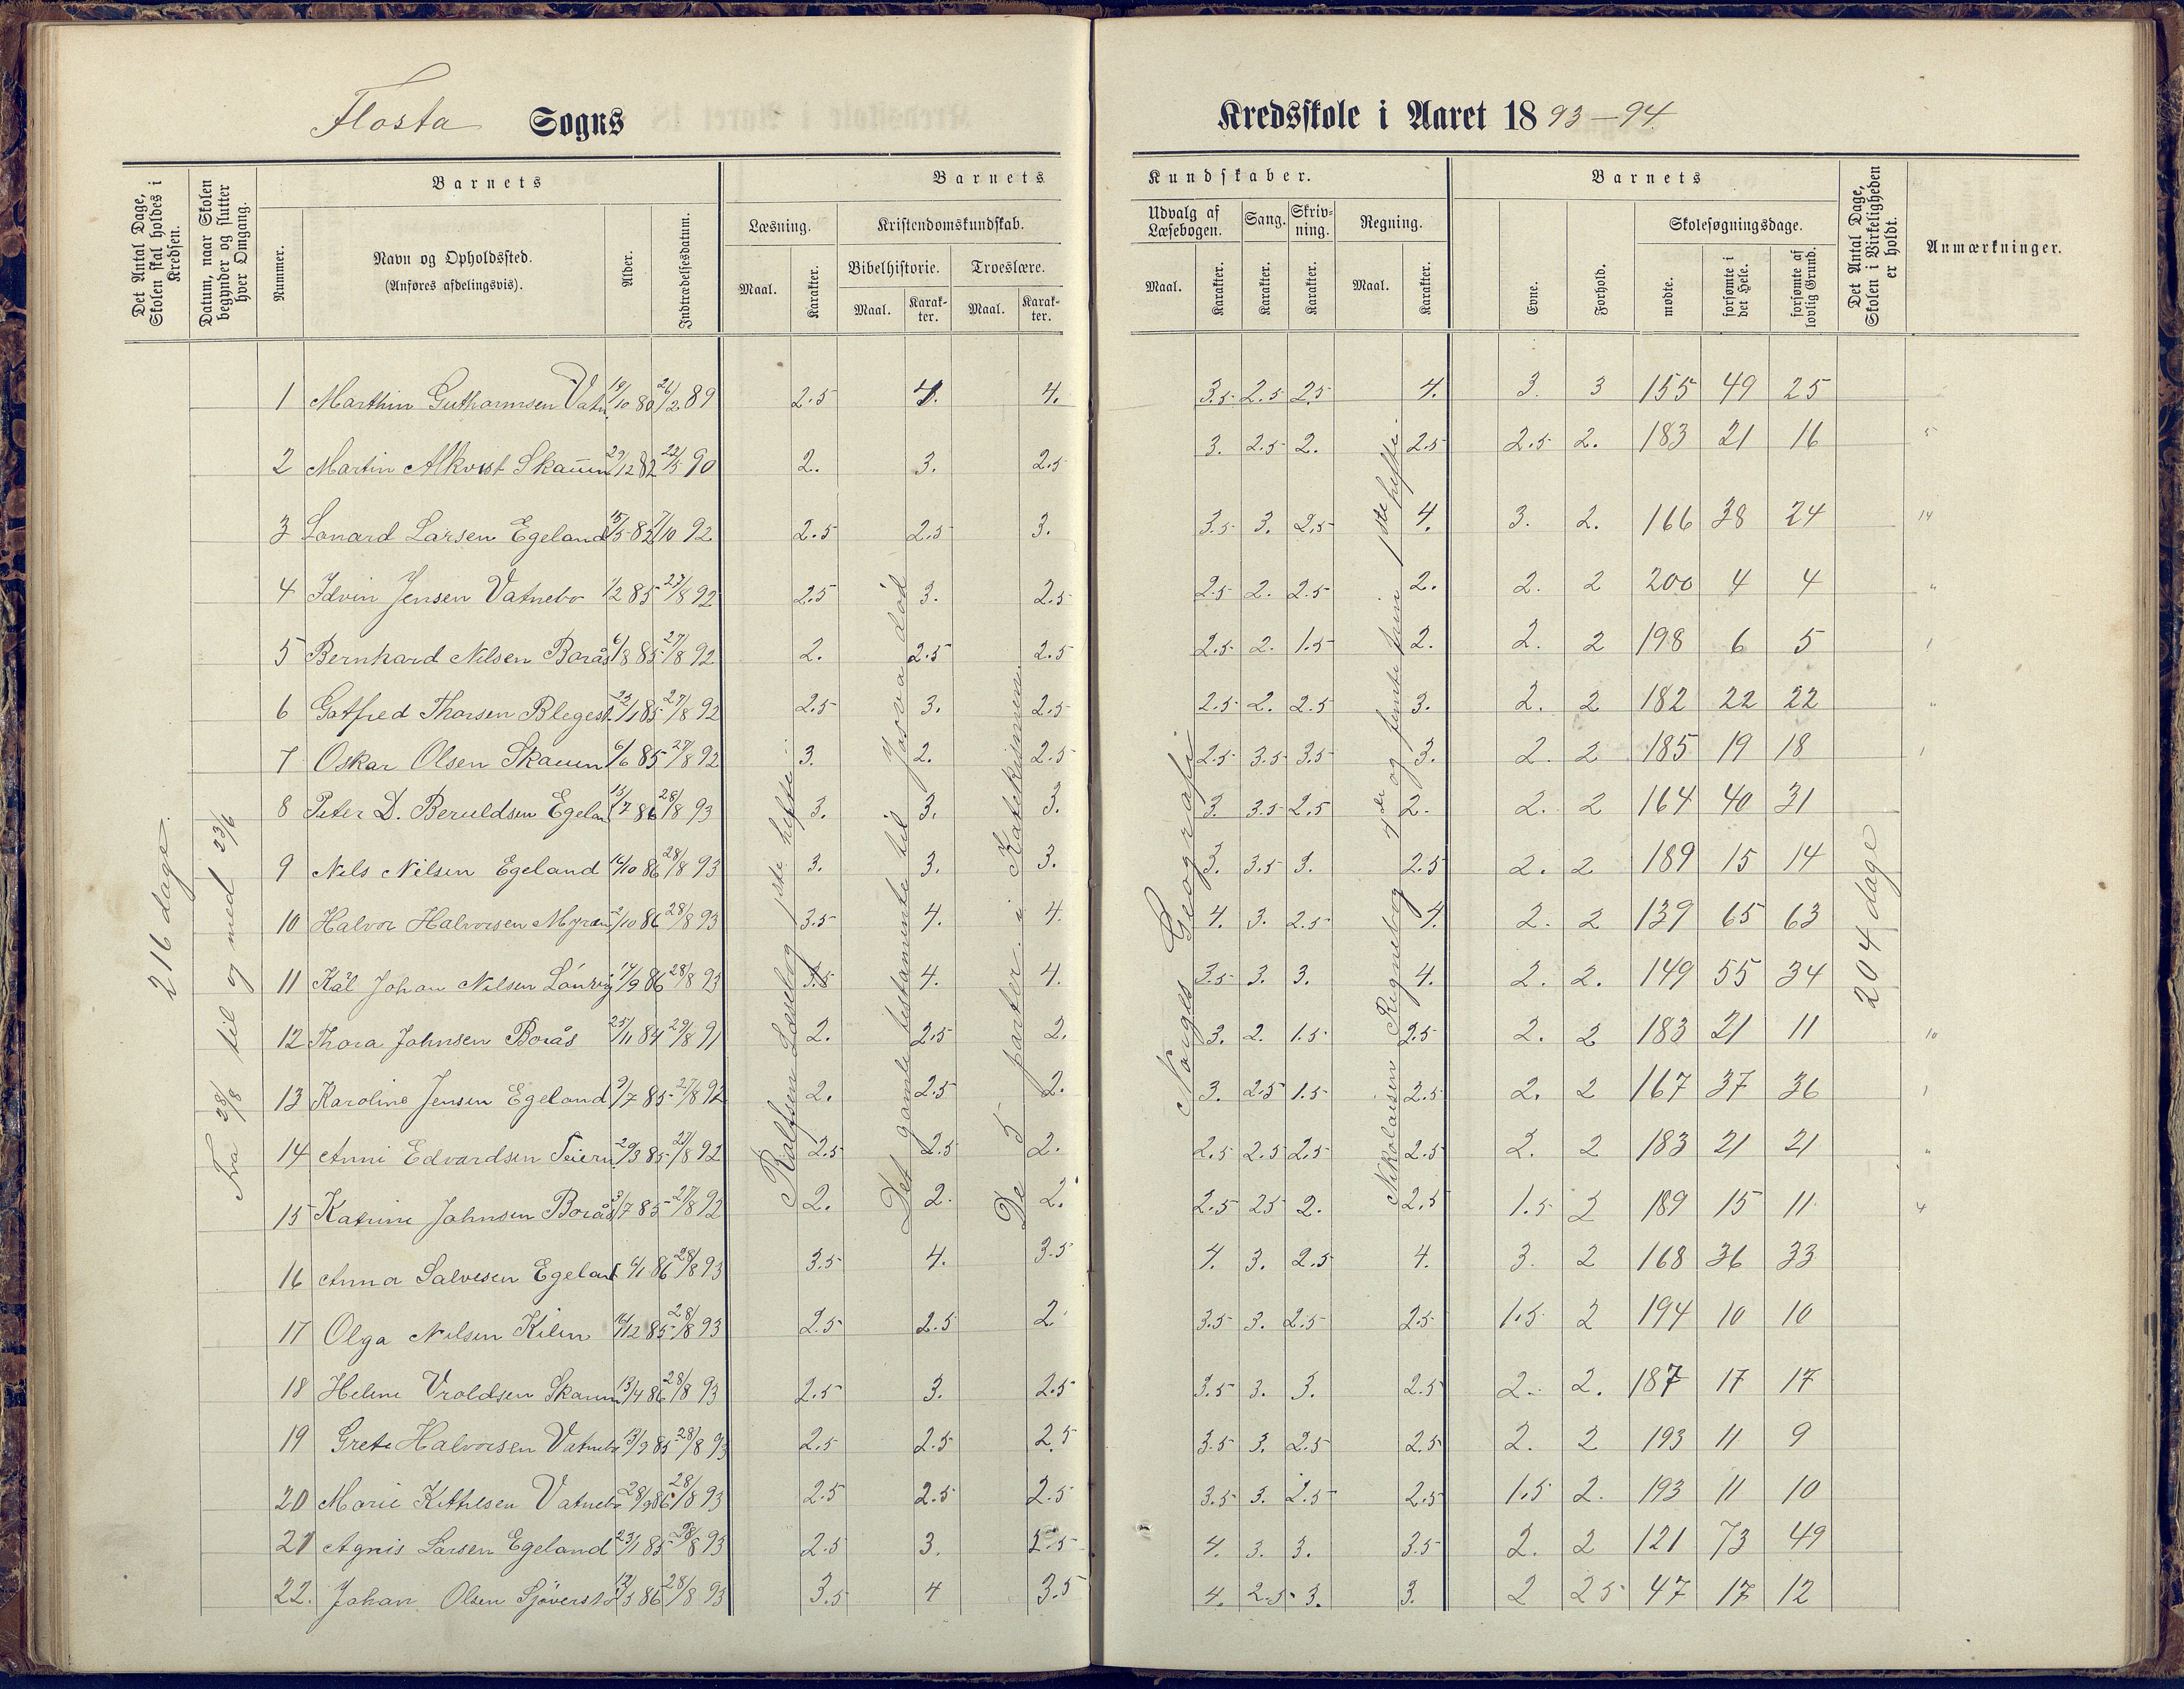 Flosta Sogns Kredsskole i Aaret 1893-94
Det Antal Dage, Skolen skal holdes i Kredsen.
Datum, naar Skolen begynder og slutter hver Omgang.
Barnets
Nummer.
Navn og Opholdssted.
(Anføres afdelingsvis).
Alder.
Indtrædelsesdatum.
Barnets Kundskaber.
Læsning.
Maal. Karakter.
Kristendomskundskab.
Bibelhistorie.
Maal. Karakter.
Troeslære.
Maal. Karakter.
Udvalg af Læsebogen.
Maal. Karakter.
Sang.
Karakter.
Skrivning.
Karakter.
Regning.
Maal. Karakter.
Barnets
Evne.
Forhold.
Skolesøgningsdage.
mødte.
forsømte i det Hele.
forsømte af lovlig Grund.
Det Antal Dage, Skolen i Virkeligheden er holdt.
Anmærkninger.
216 dage.
Fra 28/8 til og med 23/6
Rolfsen Læsebog 1ste hefte.
Det gamle testamente til Josva død
De 5 parter i Katekismen.
Norges Geografi
Nikolaisen Regnebog
204 dage
1 Marthin Guthormsen Vatn 19/10 80 26/2 89 2.5 4. 4. 3.5 2.5 2.5 4. 3. 3 155 49 25
2 Martin Alkvist Skauen 29/12 82 22/5 90 2. 3. 2.5 3. 2.5 2. 2.5 2.5 2. 183 21 16 5
3 Lonard Larsen Egeland 15/5 82 7/10 92 2.5 2.5 3. 3.5 3. 2.5 4. 3. 2. 166 38 24 14
4 Idvin Jensen Vatnebo 1/2 85 27/8 92 2.5 3. 2.5 2.5 2. 2.5 2. 2. 2 200 4 4 "
5 Bernhard Nilsen Borås 6/8 85 27/8 92 2. 2.5 2.5 2.5 2. 1.5 2. 2. 2 198 6 5 1
6 Gotfred Thorsen Blegest. 23/1 85 27/8 92 2.5 3. 2.5 2.5 2. 2.5 3. 2. 2 182 22 22 "
7 Oskar Olsen Skauen 6/6 85 27/8 92 3. 2. 2.5 2.5 3.5 3.5 3. 2. 2 185 19 18 1
8 Peter D. Beruldsen Egelan 13/7 86 28/8 93 3. 3. 3. 3. 3.5 2.5 2. 2. 2 164 40 31
9 Nels Nilsen Egeland 16/10 86 28/8 93 3. 3. 3. 3. 3.5 3. 2.5 2. 2 189 15 14
10 Halvor Halvorsen Myran 2/10 86 28/8 93 3.5 4. 4. 4. 3. 2.5 4. 2. 2 139 65 63
11 Kål Johan Nilsen 14/9 86 28/8 93 3.5 4. 4. 3.5 3. 3. 4. 2. 2. 149 55 34
12 Thora Johnsen Borås 25/11 84 29/8 91 2. 2.5 2. 3. 2. 1.5 2.5 2. 2 183 21 11 10
13 Karoline Jensen Egeland 9/7 85 27/8 92 2. 2.5 2. 3. 2.5 1.5 2.5 2. 2 167 37 36 1
14 Anni Edvardsen 29/3 85 27/8 92 2.5 2.5 2. 2.5 2.5 2.5 2.5 2. 2 183 21 21 "
15 Katrine Johnsen Borås 3/7 85 27/8 92 2. 2. 2. 2.5 25 2. 2.5 1.5 2 189 15 11 4
16 Anna Salvesen Egeland 6/1 86 28/8 93 3.5 4. 3.5 4. 3. 2.5 4. 3. 2 168 36 33
17 Olga Nilsen Kilen 16/12 85 28/8 93 2.5 2.5 2 3.5 3. 2.5 2.5 1.5 2 194 10 10
18 Helene Vroldsen Skauen 13/4 86 28/8 93 2.5 3. 2.5 3.5 3. 3. 2.5 2. 2. 187 17 17
19 Grete Halvorsen Vatnebo 13/9 85 28/8 93 2.5 2.5 2.5 3.5 3. 2.5 2.5 2. 2 193 11 9
20 Marie Kittilsen Vatnebo 28/9 86 28/8 93 2.5 2.5 2.5 3.5 3. 2.5 2.5 1.5 2. 193 11 10
21 Agnis Larsen Egeland 23/1 85 28/8 93 2.5 3. 2.5 4. 3. 3. 3.5 2. 2 121 73 49
22. Johan Olsen 12/3 86 28/8 93 3.5 4 3.5 4. 2.5 3. 3. 2 25 47 17 12